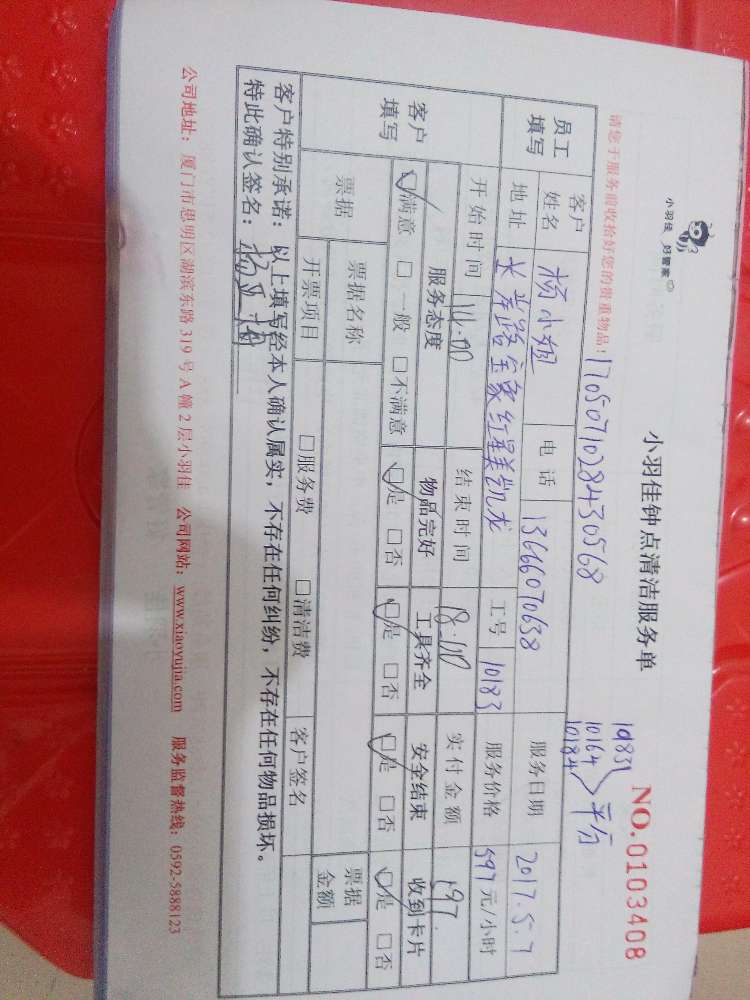 小羽佳 好管家
小羽佳钟点清洁服务单
NO.0103408
请您于服务前收拾好您的贵重物品！
17050710284305 68
10164
10184
平分
员工填写
客户姓名 杨小姐 电话 13666070638 服务日期 2017.5.7
地址 长岸路宝象红星美凯龙 工号 10183 服务价格 597元/小时
客户填写
开始时间 14:00 结束时间 18:00 实付金额 597
服务态度 物品完好 工具齐全 安全结束 收到卡片
☑满意 □一般 □不满意 ☑是 □否 ☑是 □否 ☑是 □否 ☑是 □否
票据 票据名称 票据金额
开票项目 □服务费 □清洁费 客户签名
客户特别承诺：以上填写经本人确认属实，不存在任何纠纷，不存在任何物品损坏。
特此确认签名：
公司地址：厦门市思明区湖滨东路319号A幢2层小羽佳 公司网站：www.xiaoyujia.com 服务监督热线：0592-5888123